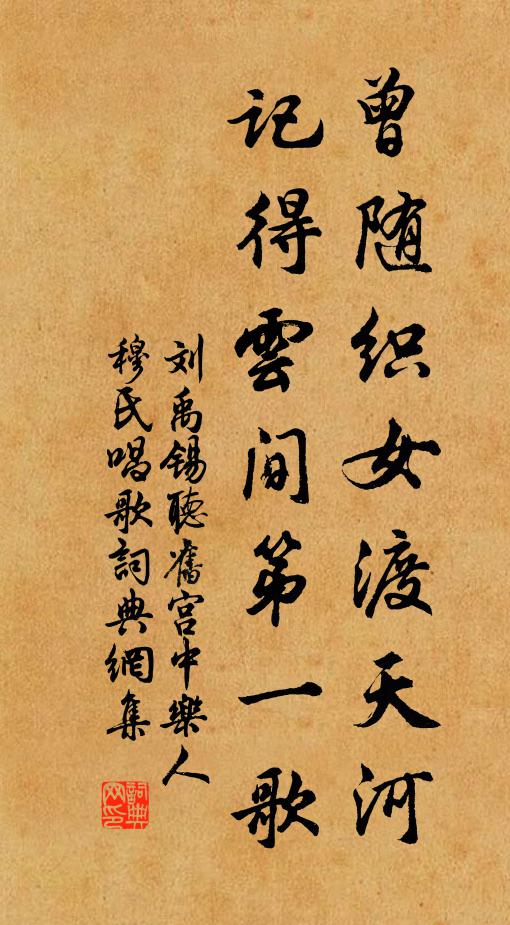 曾随织女渡天河
记得雲间第一歌
刘禹锡聽舊宫中樂人
穆氏唱歌詞典網集
詞典网印